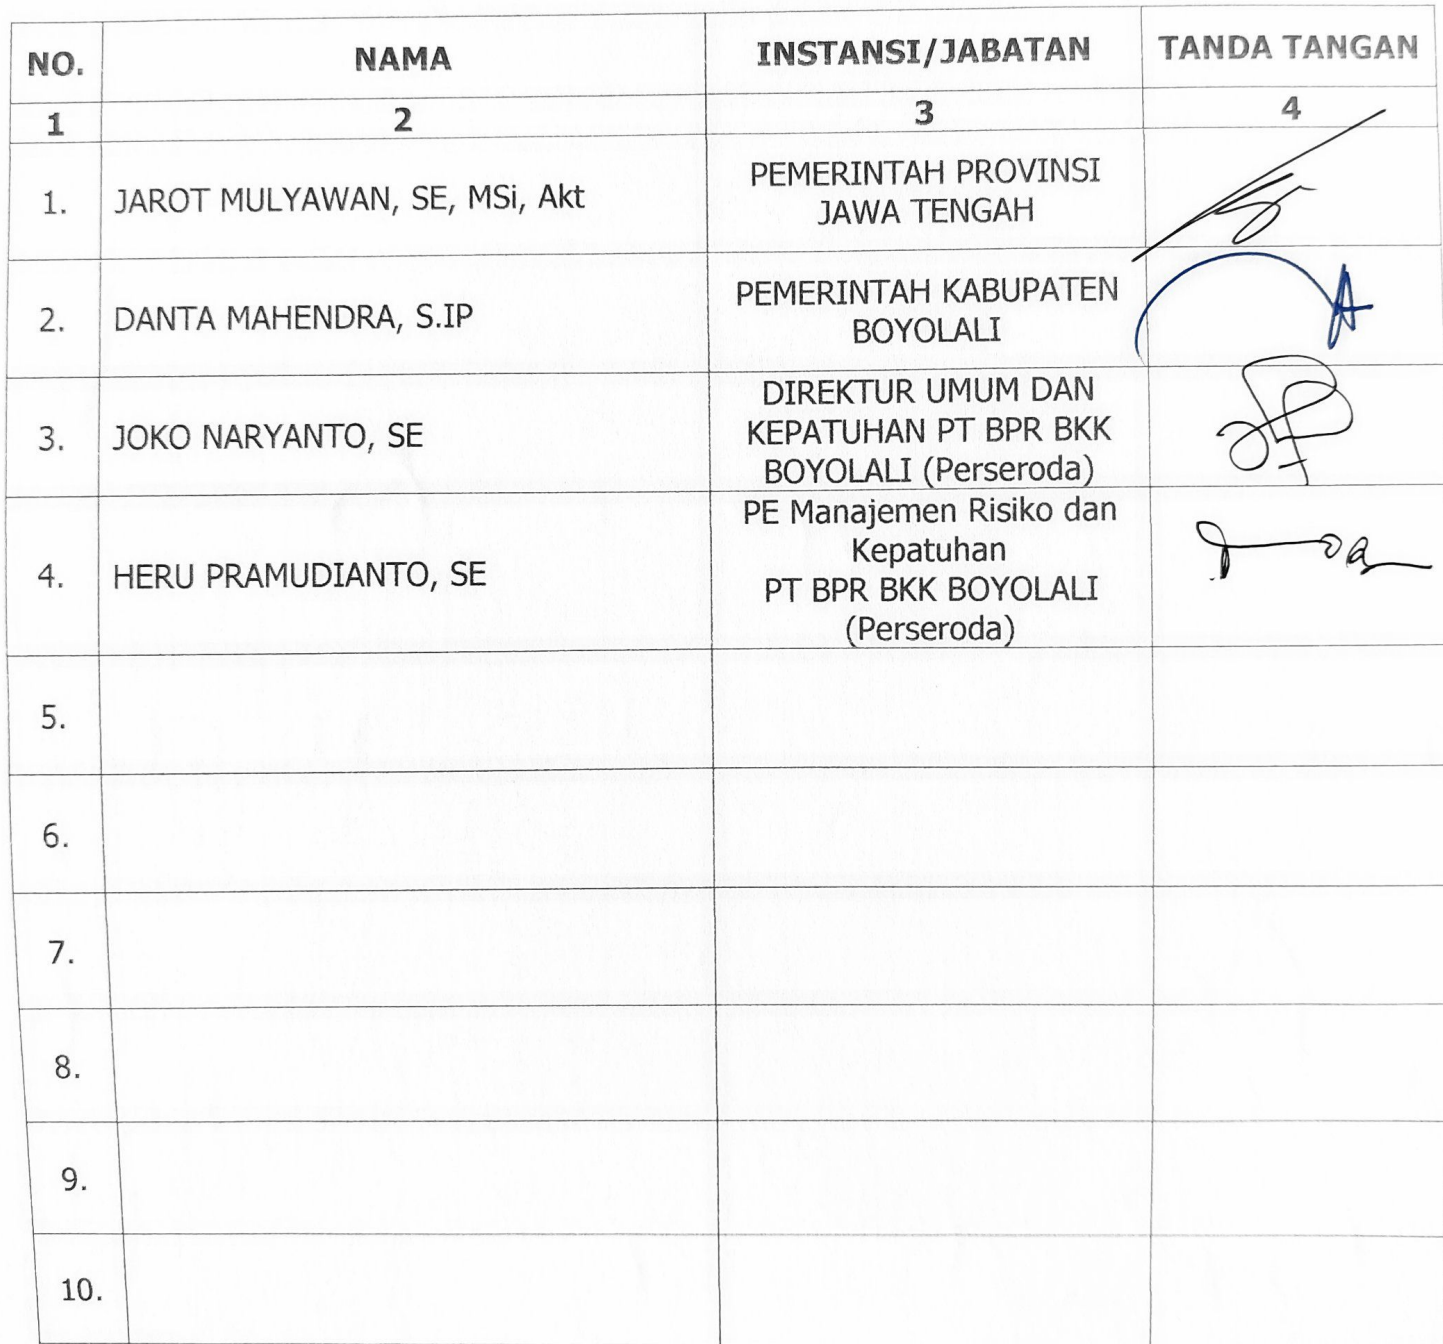 NO. NAMA INSTANSI/JABATAN TANDA TANGAN
1 2 3 4
1. JAROT MULYAWAN, SE, MSi, Akt PEMERINTAH PROVINSI
JAWA TENGAH
2. DANTA MAHENDRA, S.IP PEMERINTAH KABUPATEN
BOYOLALI
3. JOKO NARYANTO, SE DIREKTUR UMUM DAN
KEPATUHAN PT BPR BKK
BOYOLALI (Perseroda)
4. HERU PRAMUDIANTO, SE PE Manajemen Risiko dan
Kepatuhan
PT BPR BKK BOYOLALI
(Perseroda)
5.
6.
7.
8.
9.
10.